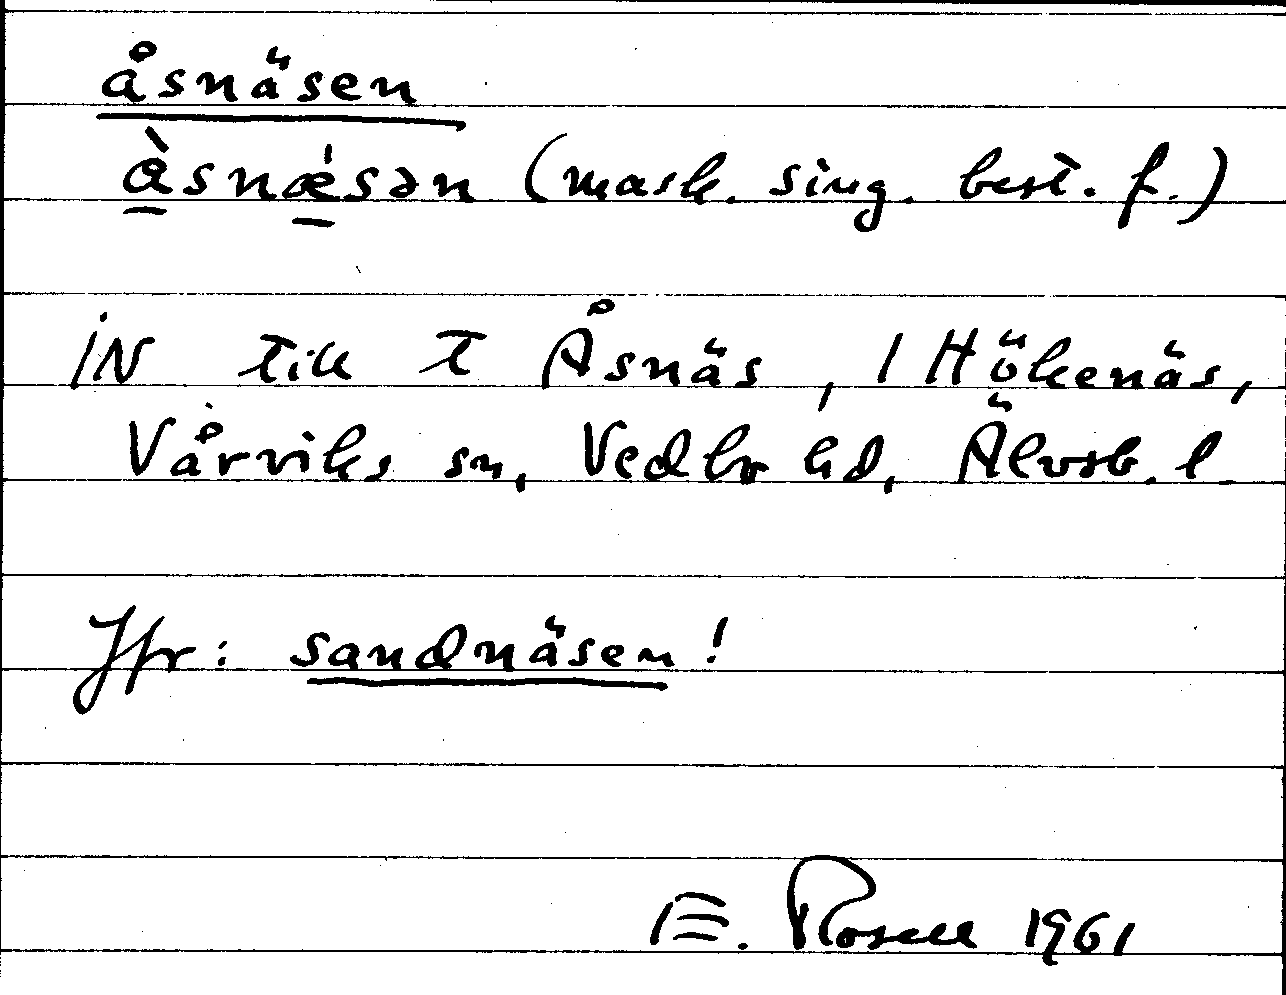 åsnäsen
å̀snǽsən (mask. sing. best. f.)
IN till t Åsnäs, 1 Hökenäs,
Vårviks sn, Vedbo hd, Älvsb. l.
Jfr: sandnäsen!
E. Rosell 1961